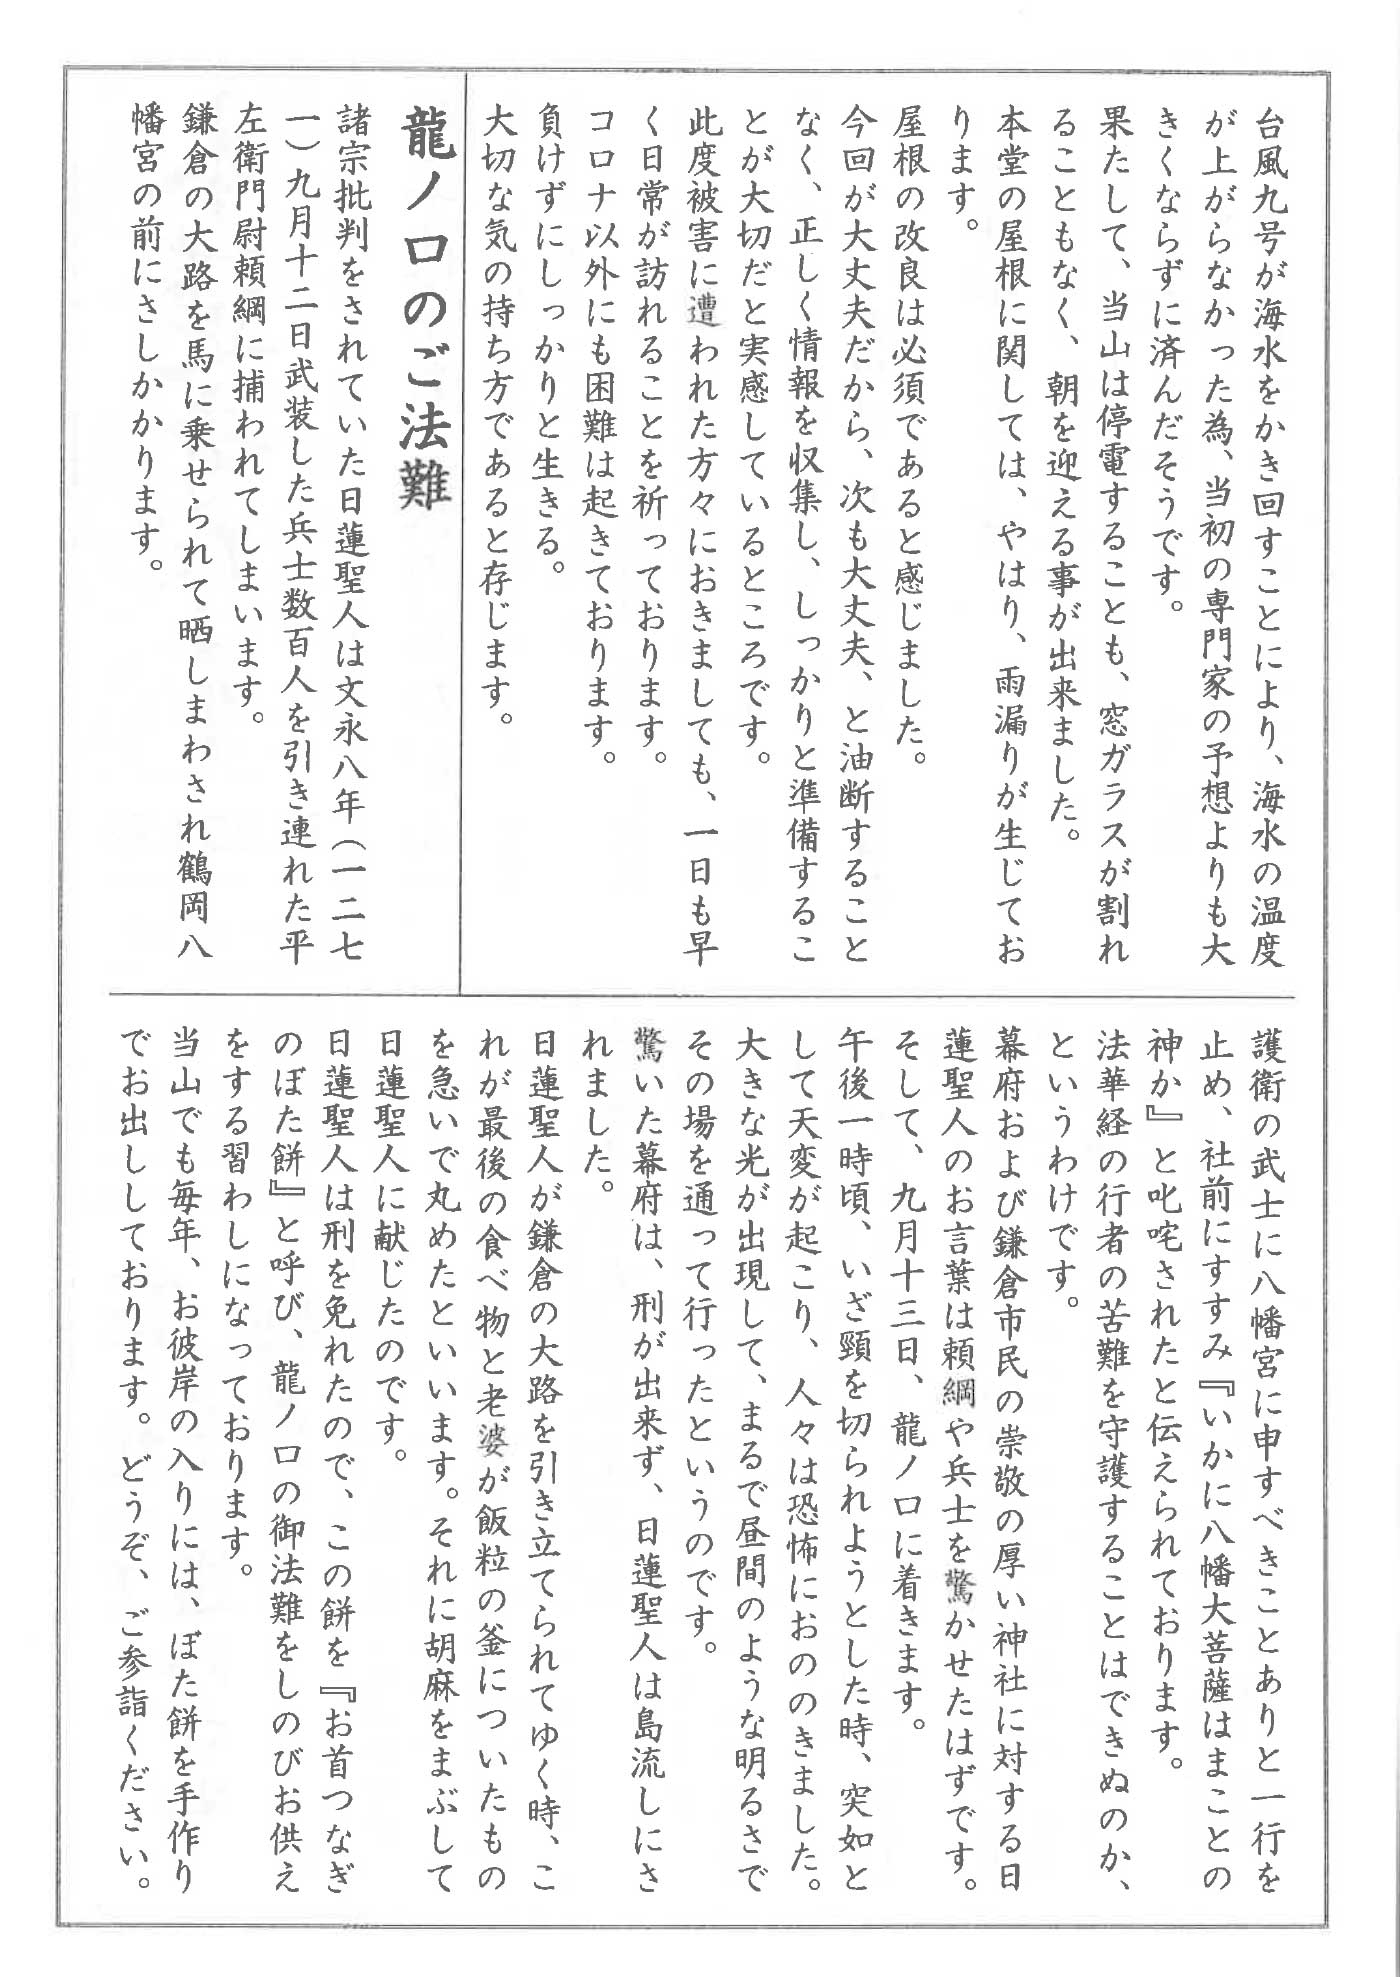 台風九号が海水をかき回すことにより、海水の温度
が上がらなかった為、当初の専門家の予想よりも大
きくならずに済んだそうです。
果たして、当山は停電することも、窓ガラスが割れ
ることもなく、朝を迎える事が出来ました。
本堂の屋根に関しては、やはり、雨漏りが生じてお
ります。
屋根の改良は必須であると感じました。
今回が大丈夫だから、次も大丈夫、と油断すること
なく、正しく情報を収集し、しっかりと準備するこ
とが大切だと実感しているところです。
此度被害に遭われた方々におきましても、一日も早
く日常が訪れることを祈っております。
コロナ以外にも困難は起きております。
負けずにしっかりと生きる。
大切な気の持ち方であると存じます。
龍ノ口のご法難
諸宗批判をされていた日蓮聖人は文永八年（一二七
一）九月十二日武装した兵士数百人を引き連れた平
左衛門尉頼綱に捕われてしまいます。
鎌倉の大路を馬に乗せられて晒しまわされ鶴岡八
幡宮の前にさしかかります。
護衛の武士に八幡宮に申すべきことありと一行を
止め、社前にすすみ『いかに八幡大菩薩はまことの
神か』と叱咤されたと伝えられております。
法華経の行者の苦難を守護することはできぬのか、
というわけです。
幕府および鎌倉市民の崇敬の厚い神社に対する日
蓮聖人のお言葉は頼綱や兵士を驚かせたはずです。
そして、九月十三日、龍ノ口に着きます。
午後一時頃、いざ頸を切られようとした時、突如と
して天変が起こり、人々は恐怖におののきました。
大きな光が出現して、まるで昼間のような明るさで
その場を通って行ったというのです。
驚いた幕府は、刑が出来ず、日蓮聖人は島流しにさ
れました。
日蓮聖人が鎌倉の大路を引き立てられてゆく時、こ
れが最後の食べ物と老婆が飯粒の釜についたもの
を急いで丸めたといいます。それに胡麻をまぶして
日蓮聖人に献じたのです。
日蓮聖人は刑を免れたので、この餅を『お首つなぎ
のぼた餅』と呼び、龍ノ口の御法難をしのびお供え
をする習わしになっております。
当山でも毎年、お彼岸の入りには、ぼた餅を手作り
でお出ししております。どうぞ、ご参詣ください。